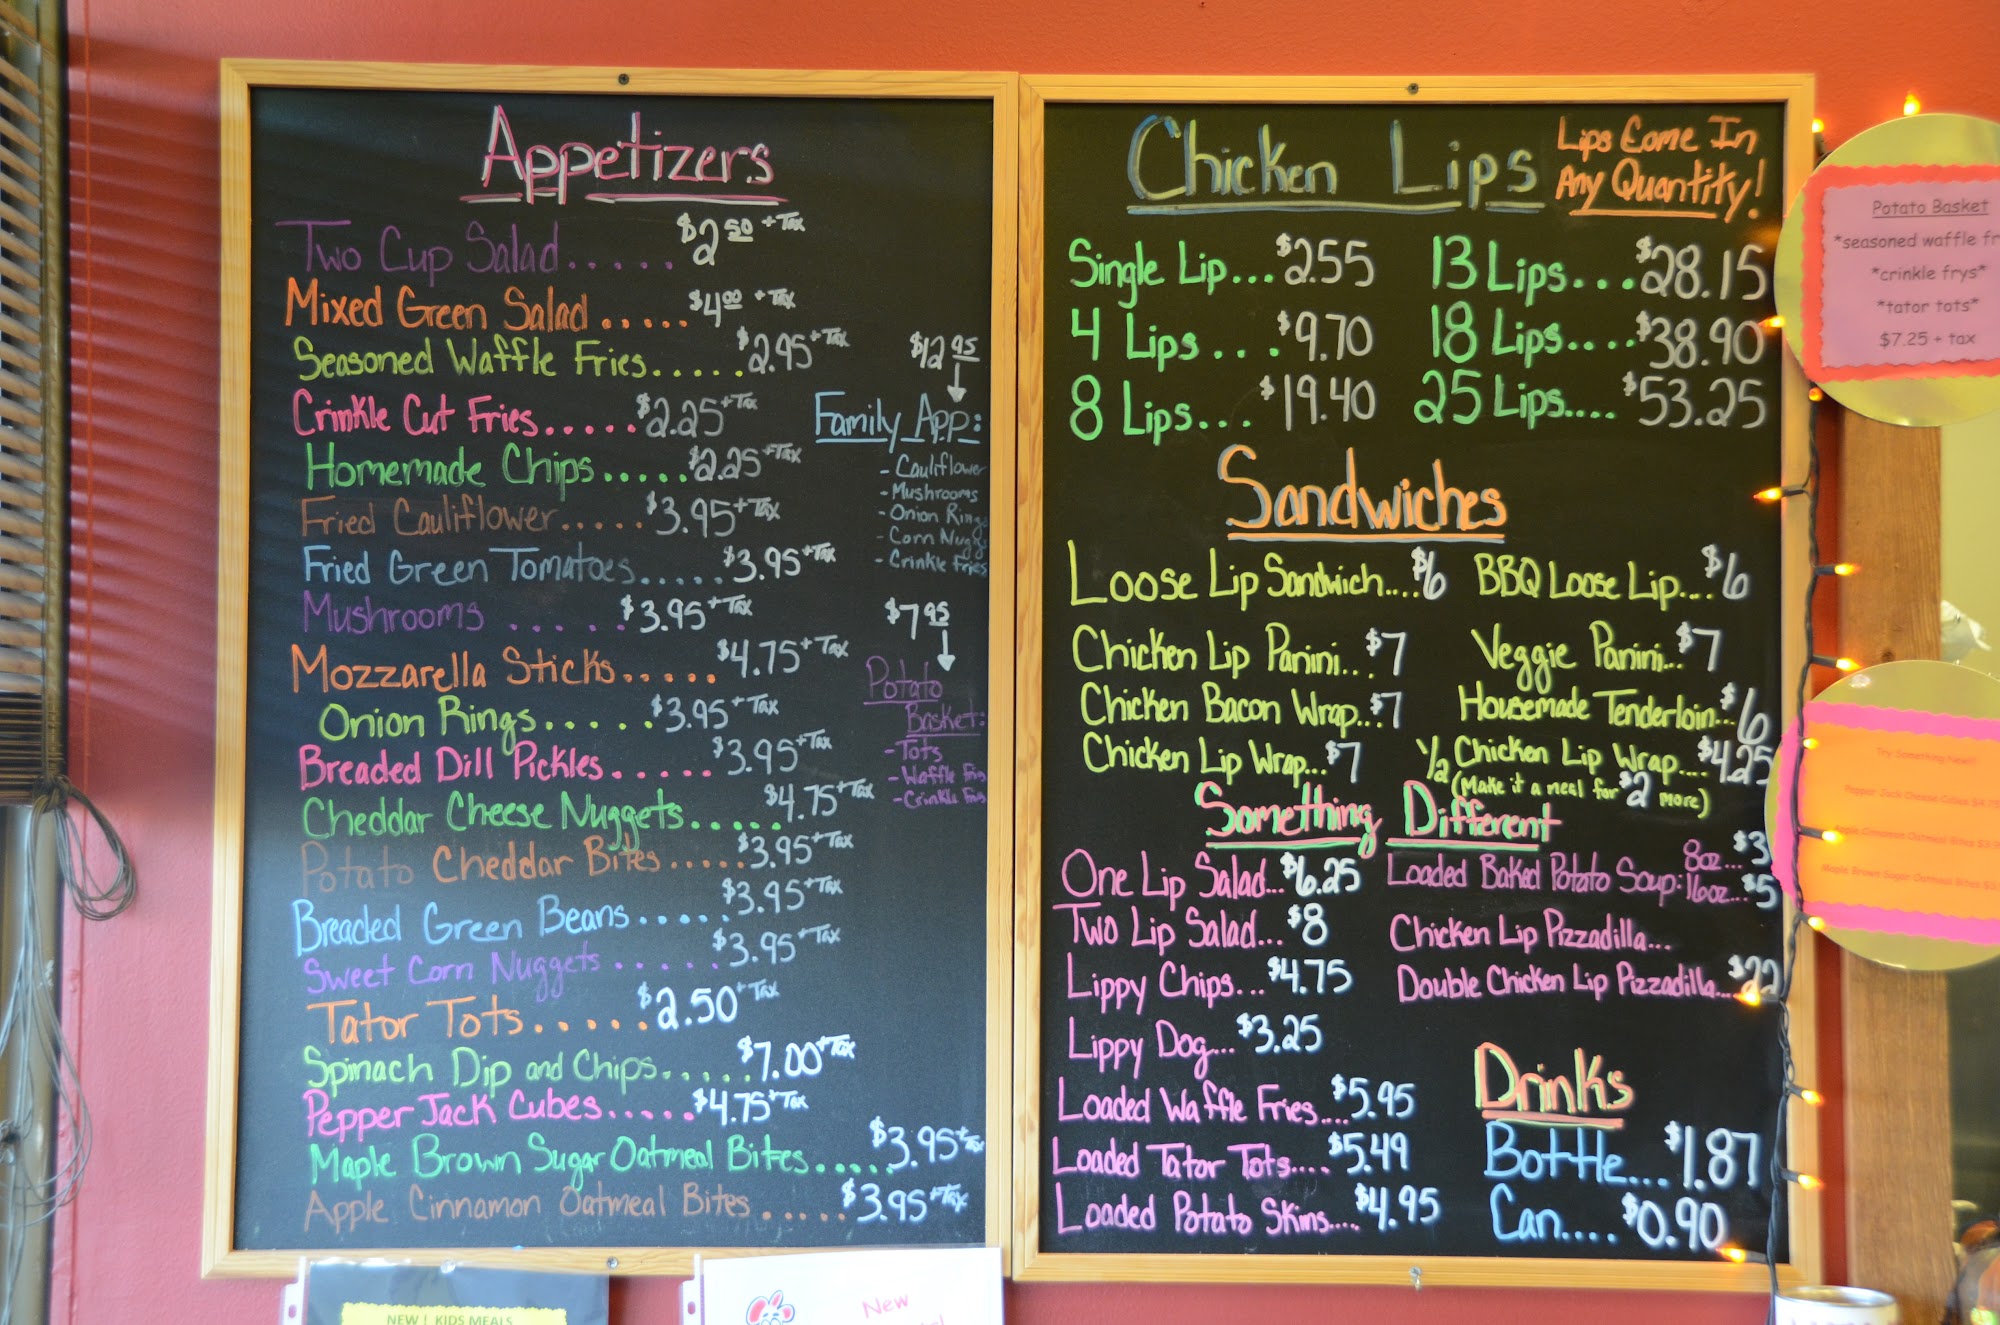 Appetizers
Two Cup Salad..... $2.50 + Tax
Mixed Green Salad ..... $4.00 + Tax
Seasoned Waffle Fries..... $2.95 + Tax
Crinkle Cut Fries..... $2.25 + Tax
Homemade Chips..... $2.25 + Tax
Fried Cauliflower..... $3.95 + Tax
Fried Green Tomatoes..... $3.95 + Tax
Mushrooms ..... $3.95 + Tax
Mozzarella Sticks..... $4.75 + Tax
Onion Rings..... $3.95 + Tax
Breaded Dill Pickles..... $3.95 + Tax
Cheddar Cheese Nuggets..... $4.75 + Tax
Potato Cheddar Bites..... $3.95 + Tax
Breaded Green Beans..... $3.95 + Tax
Sweet Corn Nuggets..... $3.95 + Tax
Tator Tots..... $2.50 + Tax
Spinach Dip and Chips..... $7.00 + Tax
Pepper Jack Cubes..... $4.75 + Tax
Maple Brown Sugar Oatmeal Bites..... $3.95 + Tax
Apple Cinnamon Oatmeal Bites ..... $3.95 + Tax
$12.95
Family App:
- Cauliflower
- Mushrooms
- Onion Rings
- Corn Nugg
- Crinkle Fries
$7.95
Potato
Basket:
- Tots
- Waffle Fries
- Crinkle Fries
Chicken Lips
Lips Come In
Any Quantity!
Single Lip... $2.55
4 Lips ... $9.70
8 Lips... $19.40
13 Lips... $28.15
18 Lips.... $38.90
25 Lips.... $53.25
Sandwiches
Loose Lip Sandwich.... $6
BBQ Loose Lip.... $6
Chicken Lip Panini... $7
Veggie Panini... $7
Chicken Bacon Wrap... $7
Housemade Tenderloin... $6
Chicken Lip Wrap... $7
1/2 Chicken Lip Wrap.... $4.25
(Make it a meal for $2 more)
Something Different
One Lip Salad... $6.25
Two Lip Salad... $8
Lippy Chips... $4.75
Lippy Dog... $3.25
Loaded Waffle Fries.... $5.95
Loaded Tator Tots.... $5.49
Loaded Potato Skins.... $4.95
Loaded Baked Potato Soup: 8oz... $3
16oz... $5
Chicken Lip Pizzadilla...
Double Chicken Lip Pizzadilla... $22
Drinks
Bottle... $1.87
Can.... $0.90
Potato Basket
*seasoned waffle fr
*crinkle frys*
*tator tots*
$7.25 + tax
Try Something New!!
Pepper Jack Cheese Cubes $4.75
Apple Cinnamon Oatmeal Bites $3.9
Maple Brown Sugar Oatmeal Bites $3
NEW ! KIDS MEALS
New